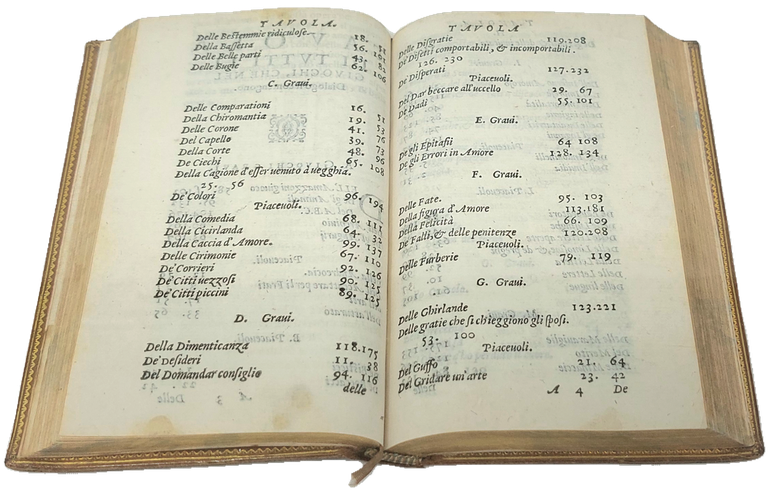 TAVOLA.
Delle Bestemmie ridiculose. 18. 51
Della Bassetta 56. 101
Delle Belle parti 43. 82
Delle Bugie 62. 106
C. Graui.
Delle Comparationi 16. 51
Della Chiromantia 19. 53
Delle Corone 41. 76
Del Capello 39. 73
Della Corte 48. 96
De Ciechi 65. 108
Della Cagione d'esser venuto à vegghia.
25. 56
De' Colori 96. 194
Piaceuoli.
Della Comedia 68. 111
Della Cicirlanda 64. 32
Della Caccia d'Amore. 99. 137
Delle Cirimonie 67. 110
De' Corrieri 92. 126
De' Citti vezzosi 90. 125
De' Citti piccini 89. 125
D. Graui.
Della Dimenticanza 118. 175
De' Desideri 11. 38
Del Domandar consiglio 94. 116
delle
A 3
TAVOLA
Delle Disgratie 119. 208
De' Difetti comportabili, & incomportabili.
126. 230
De' Disperati 127. 232
Piaceuoli.
Del Dar beccare all'uccello 29. 67
De' Dadi 55. 101
E. Graui.
De gli Epitafii 64 108
De gli Errori in Amore 128. 134
F. Graui.
Delle Fate. 95. 103
Della figura d'Amore 113. 181
Della Felicità 66. 109
De' Falli, & delle penitenze 120. 208
Piaceuoli.
Delle Furberie 79. 119
G. Graui.
Delle Ghirlande 123. 221
Delle gratie che si chieggono gli sposi.
53. 100
Piaceuoli.
Del Guffo 21. 64
Del Gridare un'arte 23. 42
A 4 De